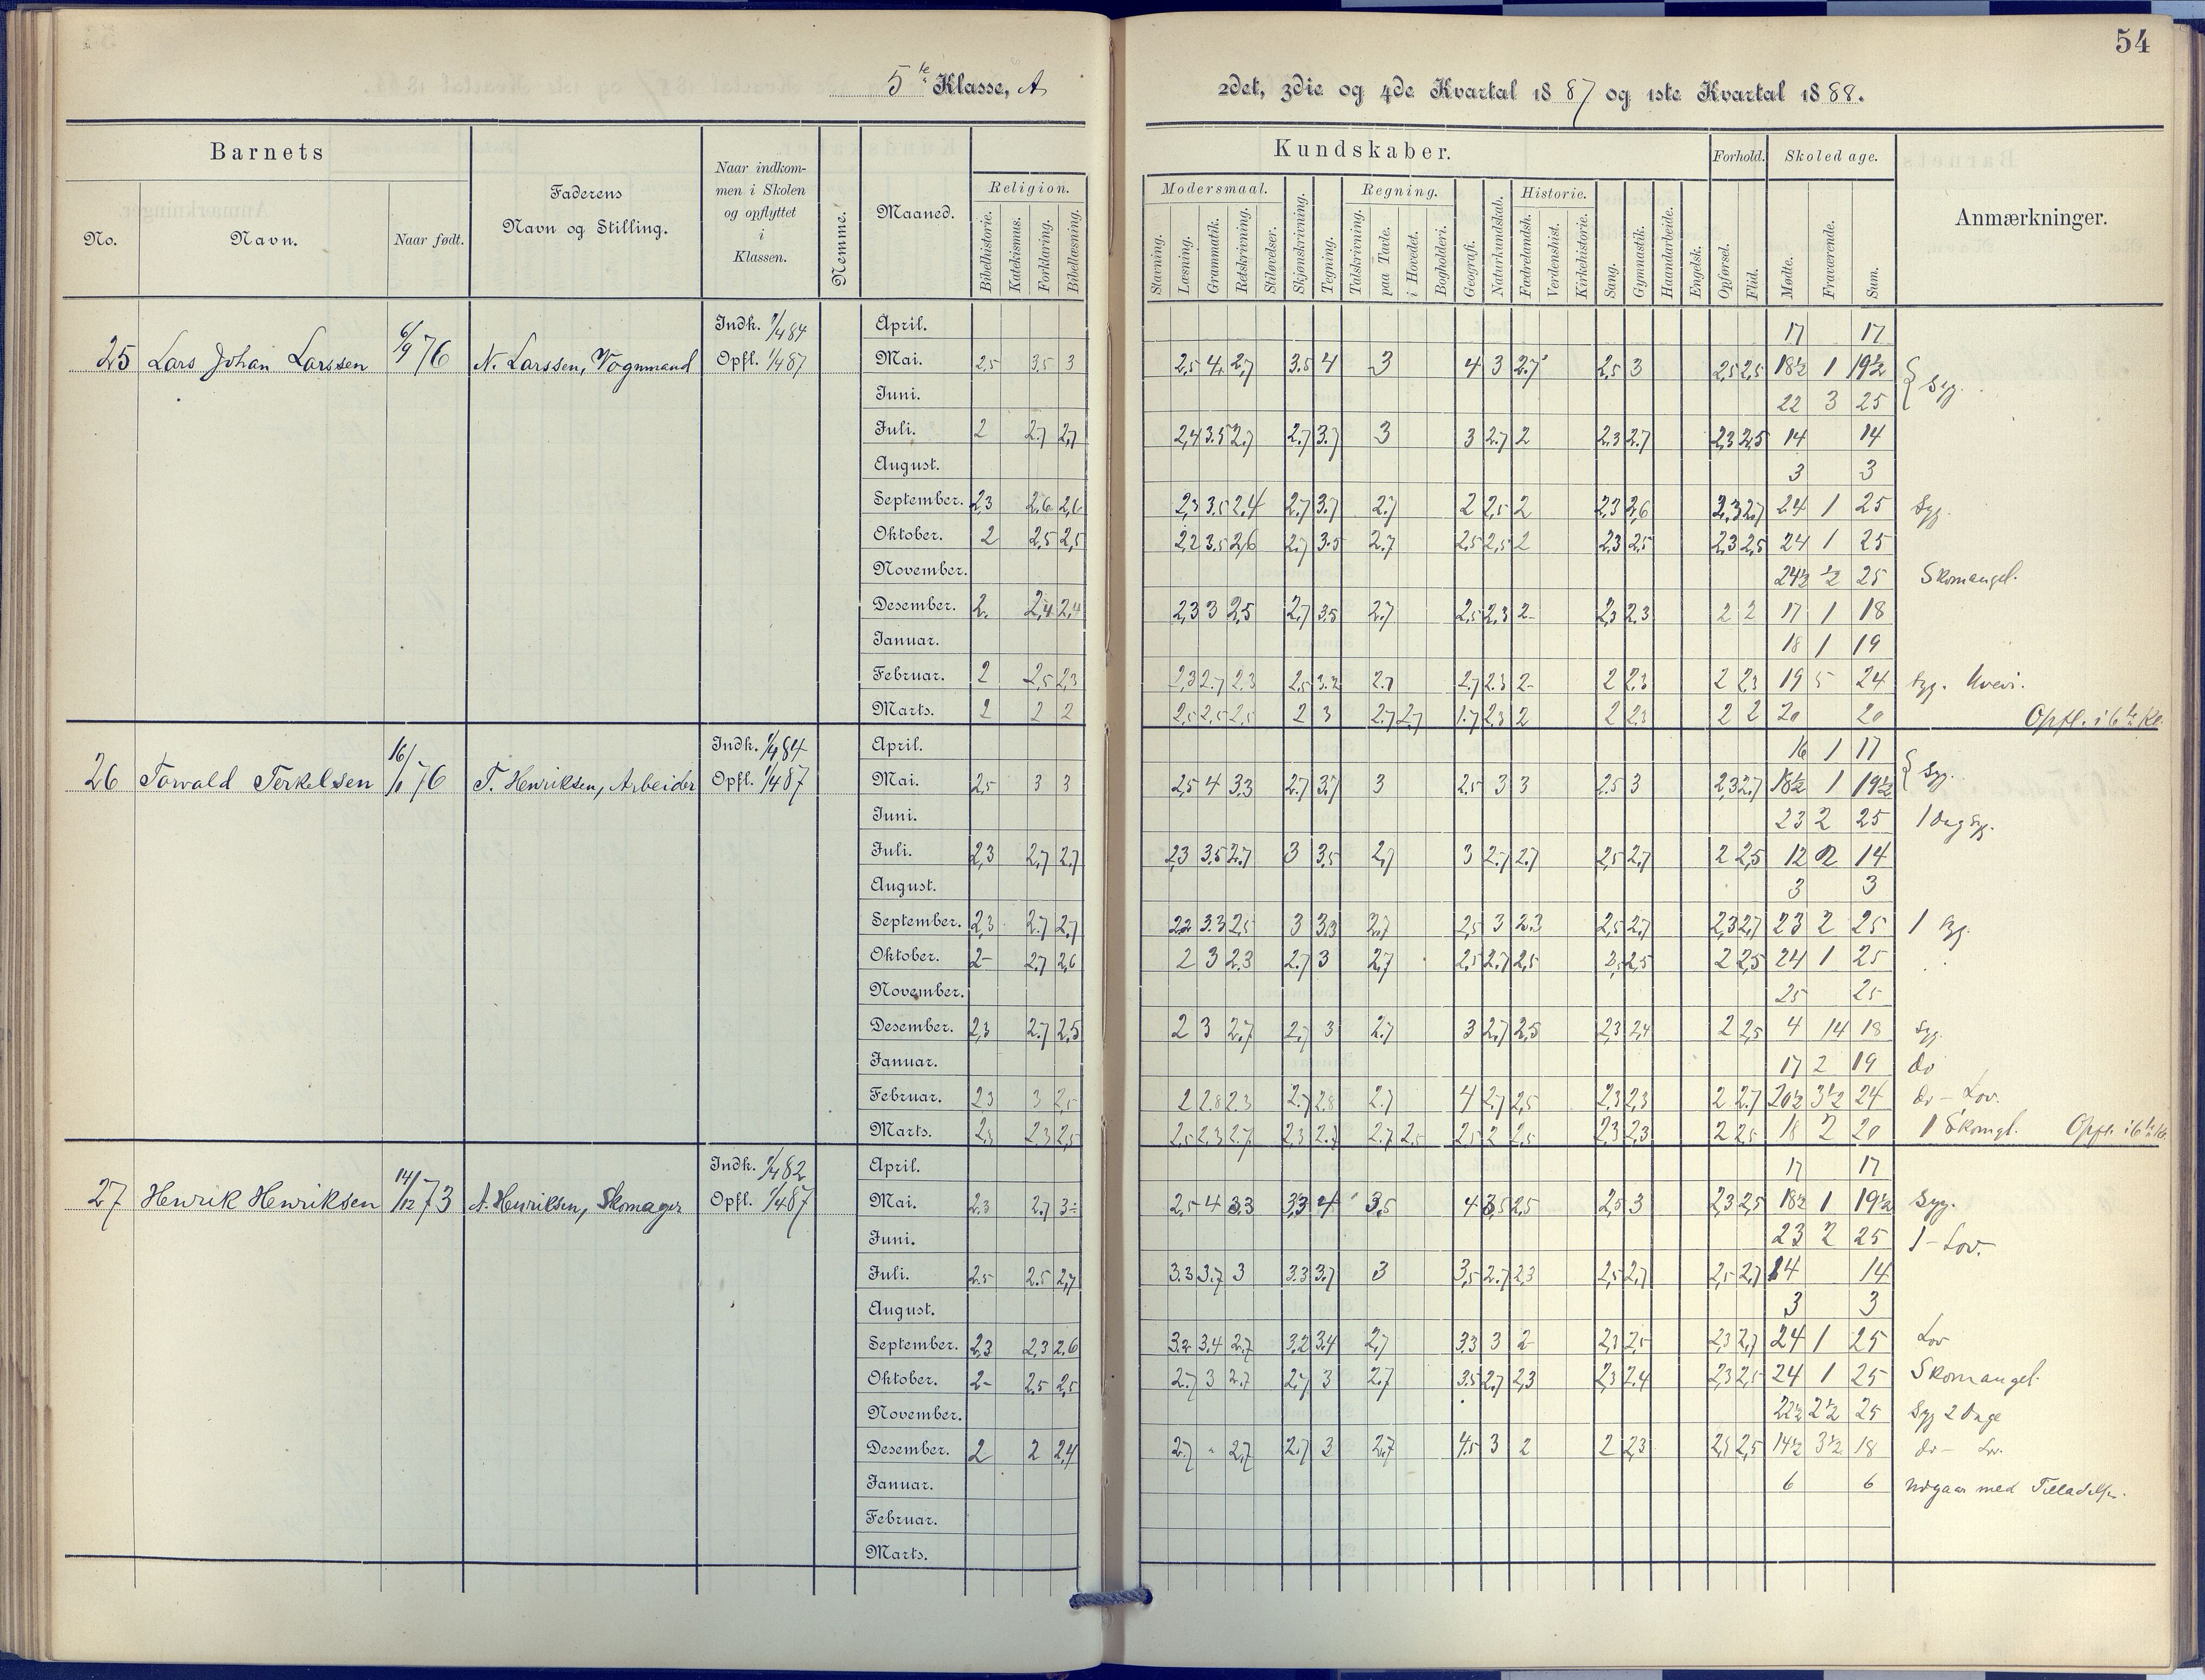 54
5te Klasse, A
2det, 3die og 4de Kvartal 1887 og 1ste Kvartal 1888.
Barnets
No.
Navn.
Naar født.
Faderens
Navn og Stilling.
Naar indkom-
men i Skolen
og opflyttet
i
Klassen.
Nemme.
Maaned.
Kundskaber.
Religion.
Bibelhistorie.
Katekismus.
Forklaring.
Bibellæsning.
Modersmaal.
Stavning.
Læsning.
Grammatik.
Retskrivning.
Stiløvelser.
Skjønskrivning.
Tegning.
Regning.
Talskrivning.
paa Tavle.
i Hovedet.
Bogholderi.
Geografi.
Naturkundskab.
Historie.
Fædrelandsh.
Verdenshist.
Kirkehistorie.
Sang.
Gymnastik.
Haandarbeide.
Engelsk.
Forhold.
Opførsel.
Flid.
Skoledage.
Mødte.
Fraværende.
Sum.
Anmærkninger.
25 Lars Johan Larssen 6/9 76 N. Larssen, Vognmand Indk. 1/4 84
Opfl. 1/4 87
April. 17 17
Mai. 2,5 3,5 3 2,5 4 2,7 3.5 4 3 4 3 2.7 2,5 3 2,5 2,5 18½ 1 19½ Syg.
Juni. 22 3 25
Juli. 2 2.7 2,7 2,4 3.5 2.7 2.7 3.7 3 3 2.7 2 2,3 2.7 2,3 2,5 14 14
August. 3 3
September. 2,3 2,6 2,6 2,3 3.5 2,4 2.7 3.7 2.7 2 2,5 2 2,3 2,6 2,3 2.7 24 1 25 Syg.
Oktober. 2 2,5 2,5 2,2 3.5 2,6 2.7 3.5 2.7 2,5 2,5 2 2,3 2,5 2,3 2,5 24 1 25
November. 24½ ½ 25 Skomangel.
Desember. 2. 2,4 2,4 2,3 3 2,5 2.7 3.5 2.7 2,5 2,3 2- 2,3 2.3 2 2 17 1 18
Januar. 18 1 19
Februar. 2 2,5 2,3 2,3 2.7 2.3 2,5 3.2 2.7 2.7 2.3 2- 2 2,3 2 2,3 19 5 24 Syg.
Marts. 2 2 2 2,5 2,5 2,5 2 3 2.7 2.7 1.7 2.3 2 2 2,3 2 2 20 20 Opfl. i 6te Kl.
26 Torvald Terkelsen 16/1 76 T. Henriksen, Arbeider Indk. 1/4 84
Opfl. 1/4 87
April. 16 1 17
Mai. 2,5 3 3 2,5 4 3.3 2.7 3.7 3 2.5 3 3 2.5 3 2,3 2.7 18½ 1 19½ Syg.
Juni. 23 2 25 1 Dag Syg.
Juli. 2,3 2,7 2.7 2,3 3.5 2.7 3 3,5 2,7 3 2.7 2.7 2,5 2,7 2 2,5 12 2 14
August. 3 3
September. 2,3 2.7 2.7 2.2 3.3 2,5 3 3,3 2.7 2,5 3 2.3 2,5 2,7 2,3 2,7 23 2 25 1 Syg.
Oktober. 2- 2.7 2,6 2 3 2.3 2.7 3 2,7 2,5 2.7 2,5 2,5 2,5 2 2,5 24 1 25
November. 25 25
Desember. 2,3 2.7 2,5 2 3 2.7 2,7 3 2.7 3 2,7 2,5 2,3 2,4 2 2,5 4 14 18 Syg.
Januar. 17 2 19 do
Februar. 2.3 3 2,5 2 2.8 2.3 2.7 2.8 2.7 4 2.7 2,5 2,3 2,3 2 2.7 20½ 3½ 24 do - Lov.
Marts. 2,3 2.3 2,5 2,5 2,3 2.7 2,3 2.7 2.7 2.5 2,5 2 2,5 2.3 2,3 2 2,5 18 2 20 1 Skomgl. Opfl. i 6te Kl.
27 Henrik Henriksen 14/12 73 A. Henriksen, Skomager Indk. 1/4 82
Opfl. 1/4 87
April. 17 17
Mai. 2.3 2.7 3÷ 2,5 4 3.3 3,3 4 3,5 4 3,5 2,5 2,5 3 2,3 2,5 18½ 1 19½ Syg.
Juni. 23 2 25 1 - Lov.
Juli. 2.5 2.5 2,7 3.3 3.7 3 3.3 3.7 3 3,5 2.7 2,3 2,5 2,7 2,5 2,7 14 14
August. 3 3
September. 2,3 2.3 2.6 3.2 3.4 2.7 3.2 3.4 2,7 3.3 3 2- 2,3 2,5 2,3 2,7 24 1 25 Lov
Oktober. 2- 2.5 2,5 2.7 3 2.7 2,7 3 2.7 3.5 2.7 2,3 2,3 2.4 2,3 2,5 24 1 25 Skomangel.
November. 22½ 2½ 25 Syg 2 Dage
Desember. 2 2 2,4 2.7 - 2,7 2.7 3 2.7 4.5 3 2 2 2,3 2,5 2,5 14½ 3½ 18 do - Lov.
Januar. 6 6 Udgaar med Tilladelse.
Februar.
Marts.